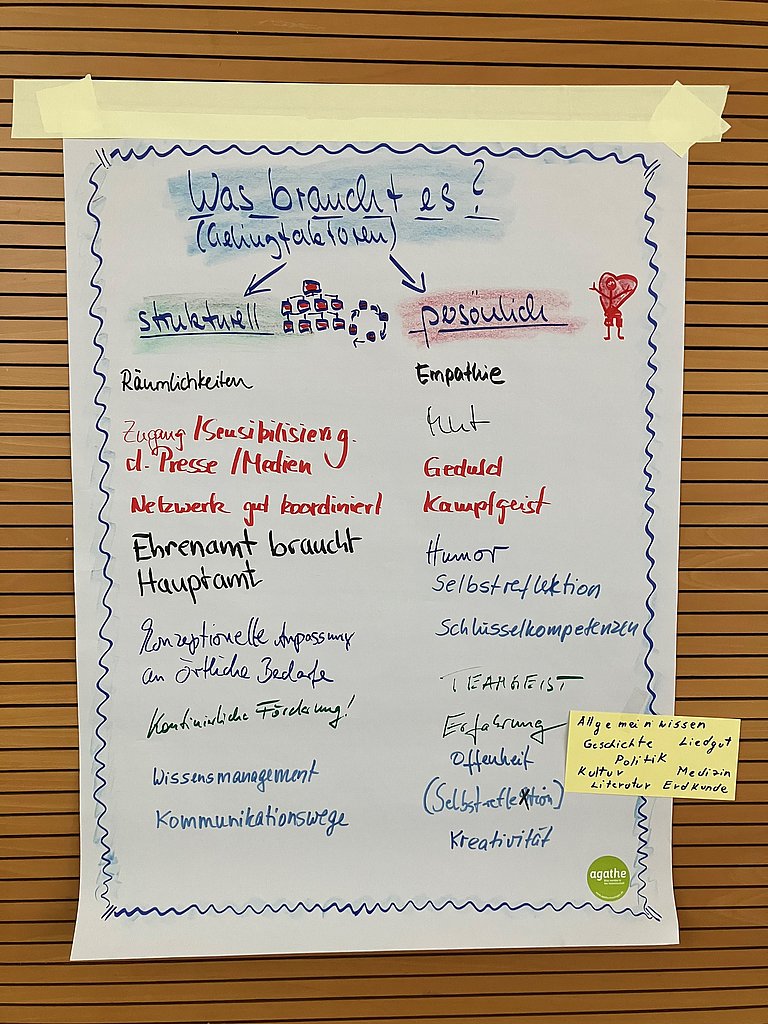 Was braucht es?
(Gelingfaktoren)
strukturell
Räumlichkeiten
Zugang / Sensibilisierug.
d. Presse / Medien
Netzwerk gut koordiniert
Ehrenamt braucht
Hauptamt
Konzeptionelle Anpassung
an örtliche Bedarfe
Kontinuierliche Förderung!
Wissensmanagement
Kommunikationswege
persönlich
Empathie
Mut
Geduld
Kampfgeist
Humor
Selbstreflektion
Schlüsselkompetenzen
TEAMGEIST
Erfahrung
Offenheit
(Selbstreflexion)
Kreativität
Allgemeinwissen
Geschichte Liedgut
Politik
Kultur Medizin
Literatur Erdkunde
agathe